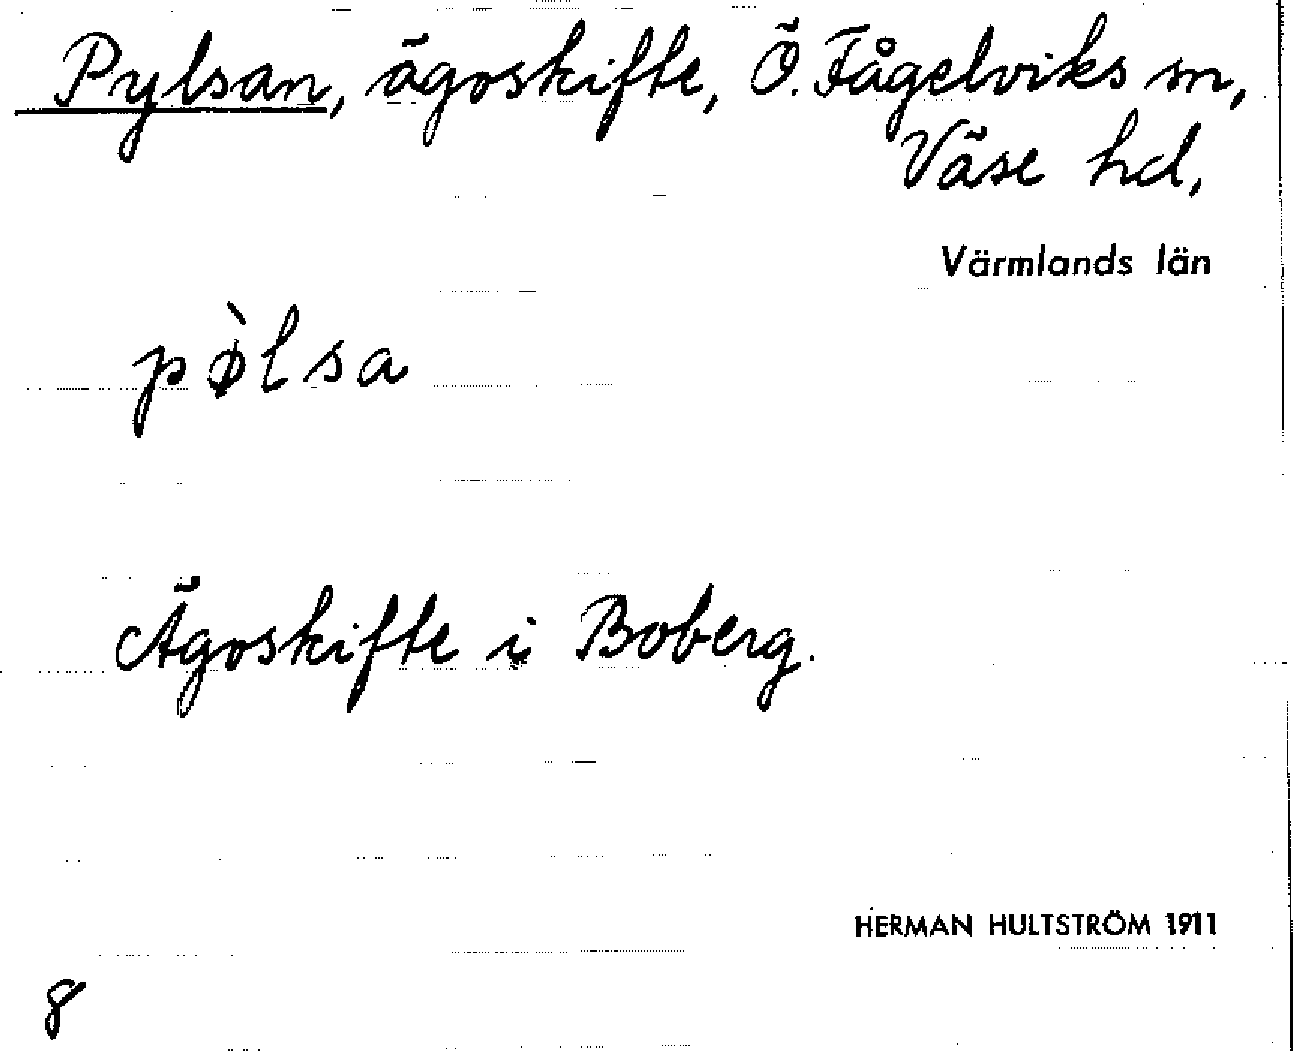 Pylsan, ägoskifte, Ö. Fågelviks sn,
Väse hd,
Värmlands län
pø̀lsa
Ägoskifte i Boberg.
HERMAN HULTSTRÖM 1911
8